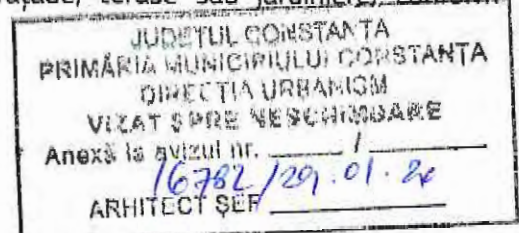 terase sau jardiniere, conform
JUDEȚUL CONSTANȚA
PRIMĂRIA MUNICIPIULUI CONSTANȚA
DIRECȚIA URBANISM
VIZAT SPRE NESCHIMBARE
Anexă la avizul nr. ______ / ______
16782/29.01.
ARHITECT ȘEF ______